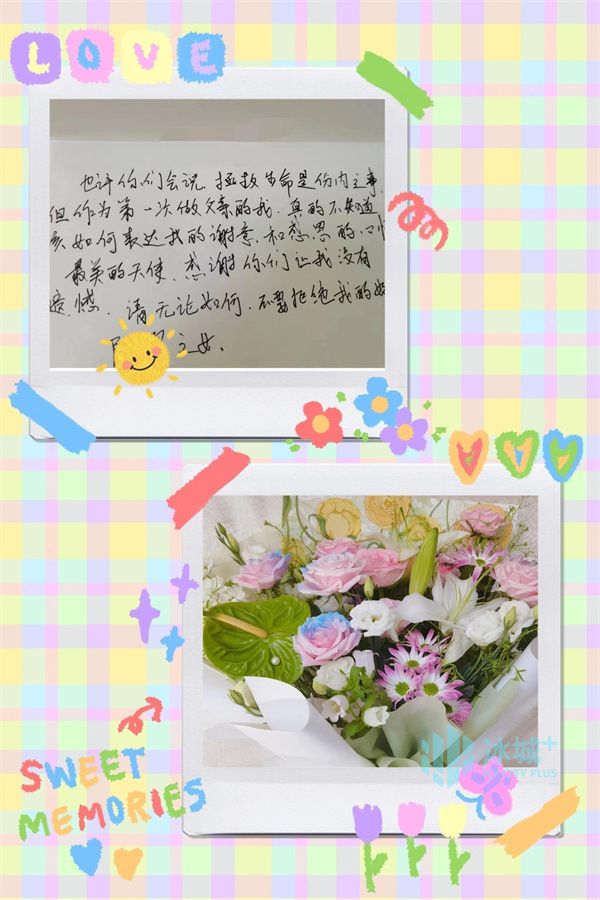 LOVE
也许你们会说，拯救生命是份内之事，
但作为第一次做父亲的我，真的不知道
该如何表达我的谢意，和感恩的心
最美的天使，感谢你们让我没有
遗憾，请无论如何，不要拒绝我的
之女，
SWEET
MEMORIES
冰城+
TY PLUS